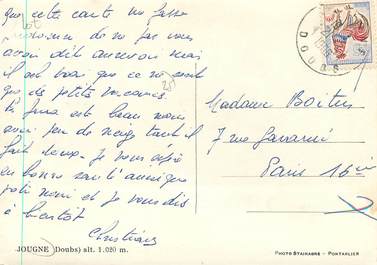 que cette carte ne fasse
de ne pas vous
avoir dit au revoir mais
il est vrai que ce ne sont
que de petites vacances.
Le Jura est beau nous
avons peu de neige tant il
fait doux. Je vous espère
en bonne santé ainsi que
et je vous dis
à bientôt
Christiane
JOUGNE (Doubs) alt. 1.020 m.
DOUBS
Madame Boitus
7 rue Gavarni
Paris 16è
PHOTO STAINACRE - PONTARLIER